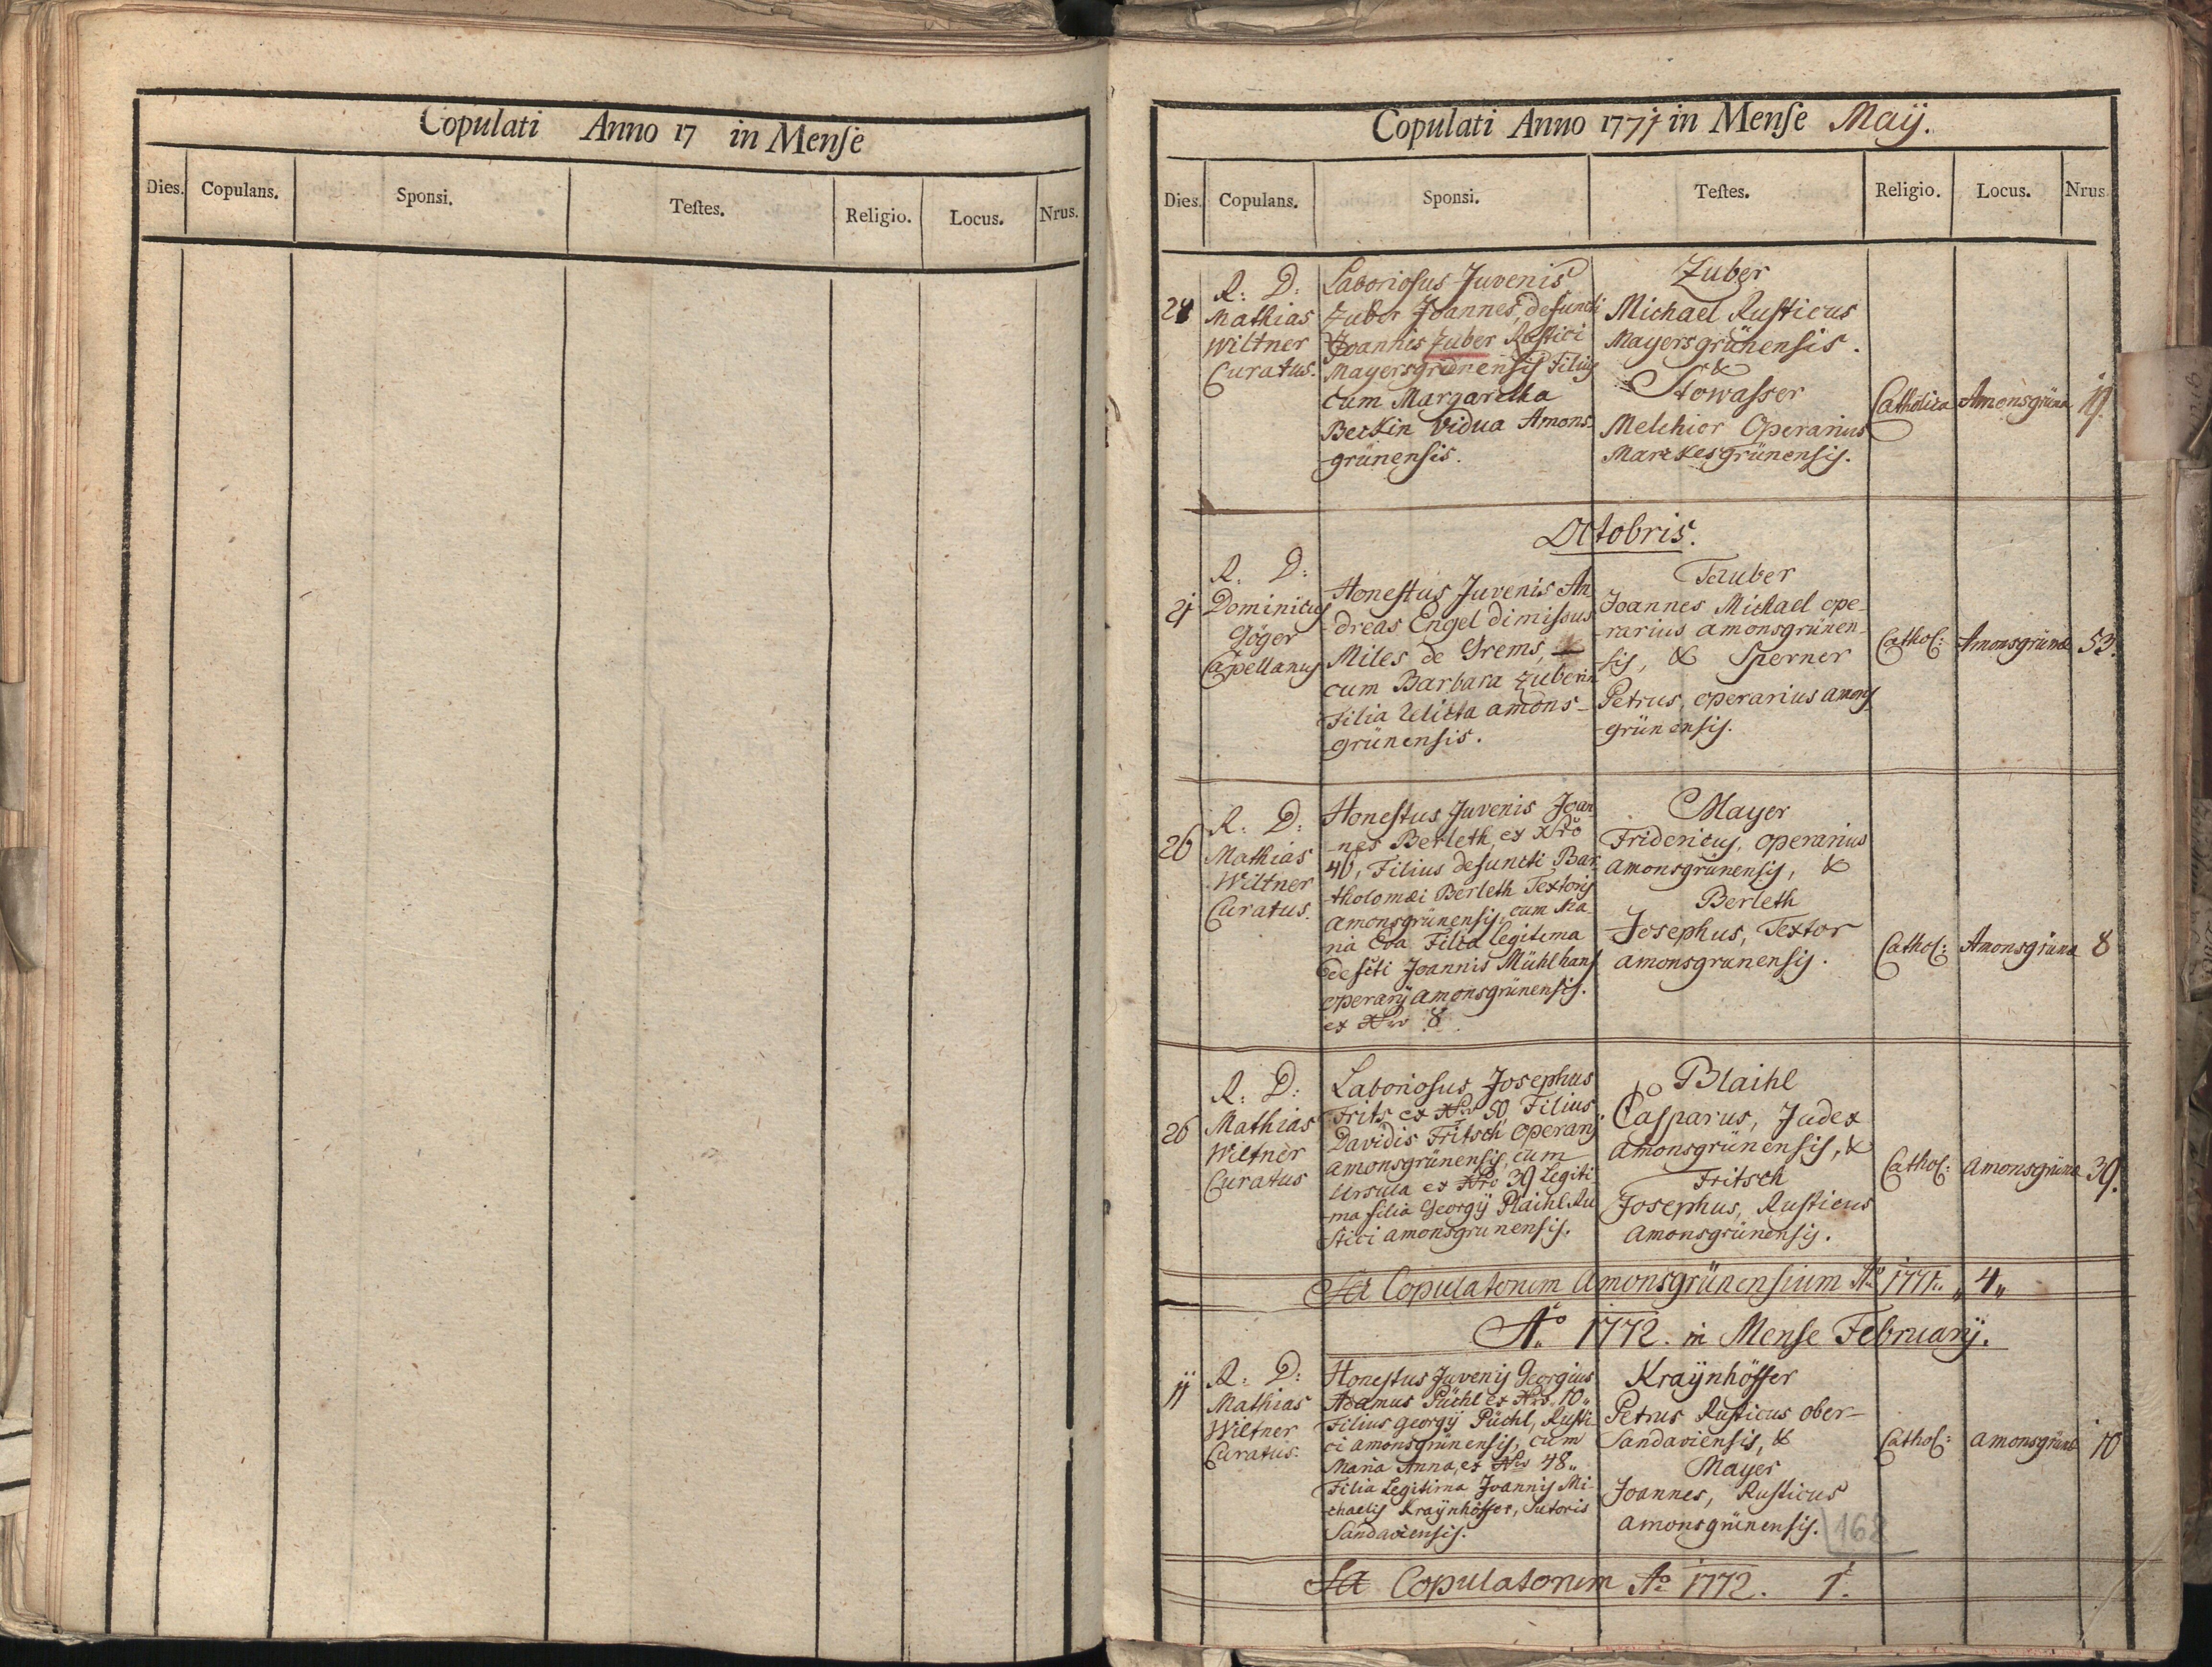 Copulati Anno 17 in Mense
Dies. Copulans. Sponsi. Testes. Religio. Locus. Nrus.
Copulati Anno 1771 in Mense Maij.
Dies. Copulans. Sponsi. Testes. Religio. Locus. Nrus
28
R: D:
Mathias
Wiltner
Curatus.
Laboriosus Juvenis
Zuber Joannes, defuncti
Joannis Zuber Rustici
Mayersgrünensis Filius
cum Margaretha
Beckin Vidua Amons-
grünensis.
Zuber
Michael Rusticus
Mayersgrünensis.
&
Stowasser
Melchior Operarius
Marckesgrünensis.
Catholica
Amonsgrüna
19.
Octobris.
21
R: D:
Dominicus
Göger
Capellanus
Honestus Juvenis An
-dreas Engel dimissus
Miles de Grems,
cum Barbara Zuberin
Filia relicta amons-
grünensis.
Tauber
Joannes Michael ope-
-rarius amonsgrünen-
sis, & Sperner
Petrus, operarius amons
grünensis.
Cathol:
Amonsgrünae
53.
26
R: D:
Mathias
Wiltner
Curatus.
Honestus Juvenis Joan
-nes Berleth, ex Nro
40, Filius defuncti Bar
-tholomæi Berleth Textoris
amonsgrünensis, cum Ma-
ria Eva Filia legitima
defcti Joannis Mühlhans
operarij amonsgrünensis.
ex Nro 8.
Mayer
Fridericus, operarius
amonsgrünensis, &
Berleth
Josephus, Textor
amonsgrunensis.
Cathol:
Amonsgrüna
8
26
R: D:
Mathias
Wiltner
Curatus
Laboriosus Josephus
Frits ex Nro 50, Filius
Davidis Fritsch operarij
amonsgrünensis, cum
Ursula ex Nro 39 Legiti
-ma filia Georgij Plaihl Ru
stici amonsgrunensis.
Blaihl
Casparus, Judex
amonsgrünensis, &
Fritsch
Josephus, Rusticus
Amonsgrünensis.
Cathol:
amonsgrünae
39.
Sa Copulatorum Amonsgrünensium Ao 1771. „ 4„
Ao 1772. in Mense Februarij.
11
R: D:
Mathias
Wiltner
Curatus.
Honestus Juvenis Georgius
Adamus Püchl ex Nro 10„
Filius Georgij Püchl, Rusti
ci amonsgrünensis, cum
Maria Anna, ex Nro 48„
Filia Legitima Joannis Mi-
-chaelis Kraÿnhöffer, Sutoris
Sandaviensis.
Kraÿnhöffer
Petrus Rusticus ober-
Sandaviensis, &
Mayer
Joannes, Rusticus
amonsgrünensis.
Cathol:
amonsgrünae
10
162
Sa Copulatorum Ao 1772. 1.